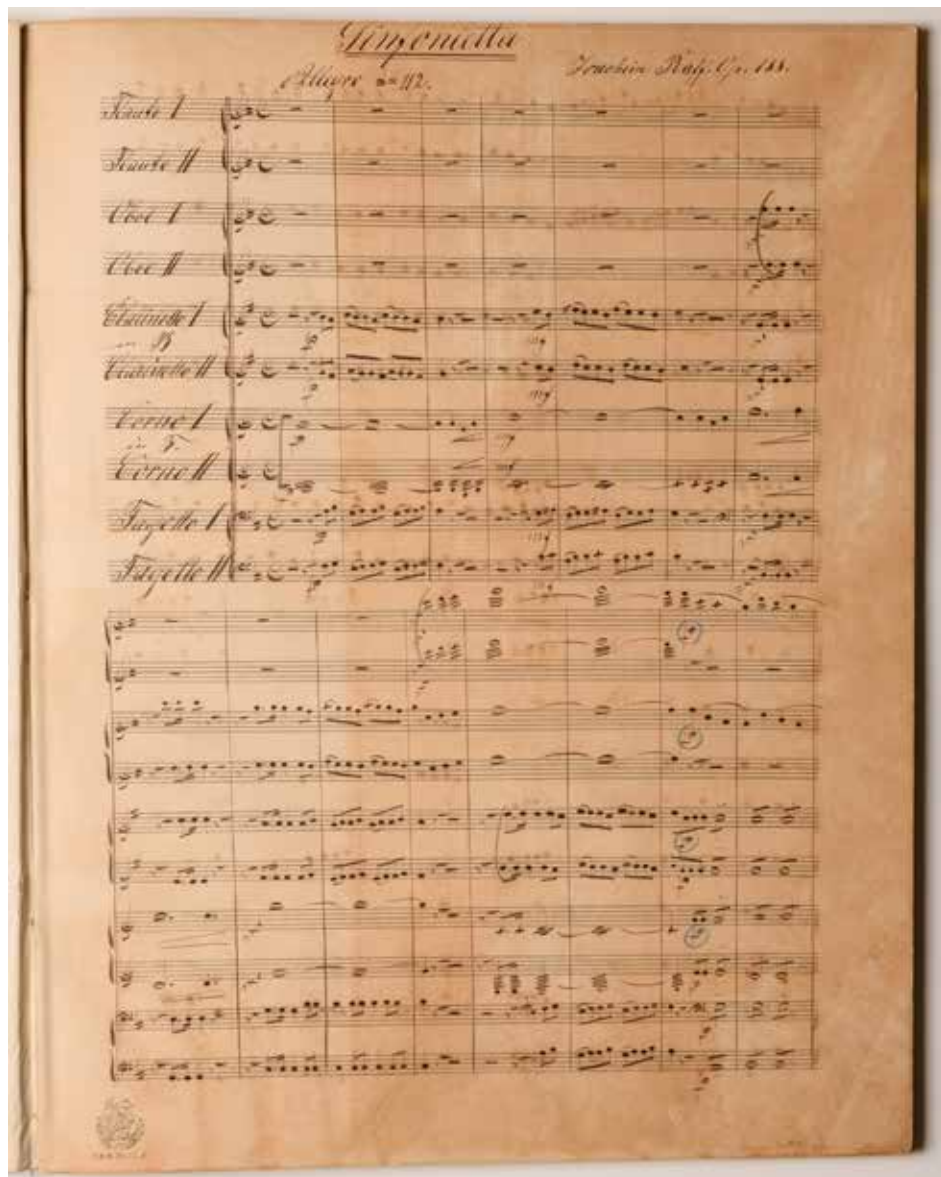 Sinfonietta
Allegro = 112.
Joachim Raff. Op. 188.
Flauto I
Flauto II
Oboe I
Oboe II
Clarinetto I
in B
Clarinetto II
Corno I
in F.
Corno II
Fagotto I
Fagotto II